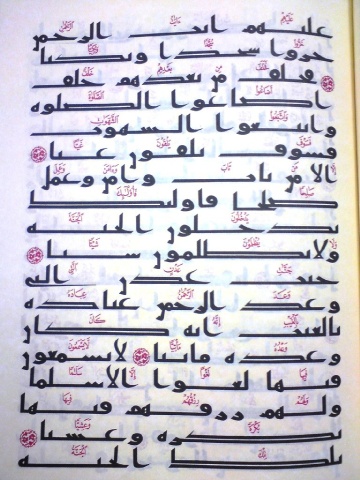 عليهم ايت الرحمن
خروا سجدا وبكيا
فخلف من بعدهم خلف
اضاعوا الصلوه
واتبعوا الشهوت
فسوف يلقون غيا
الا من تاب وامن وعمل
صلحا فاولئك
يدخلون الجنه
ولا يظلمون شيا
جنت عدن التى
وعد الرحمن عباده
بالغيب انه كان
وعده ماتيا لا يسمعون
فيها لغوا الا سلما
ولهم رزقهم فيها
بكره وعشيا
تلك الجنه